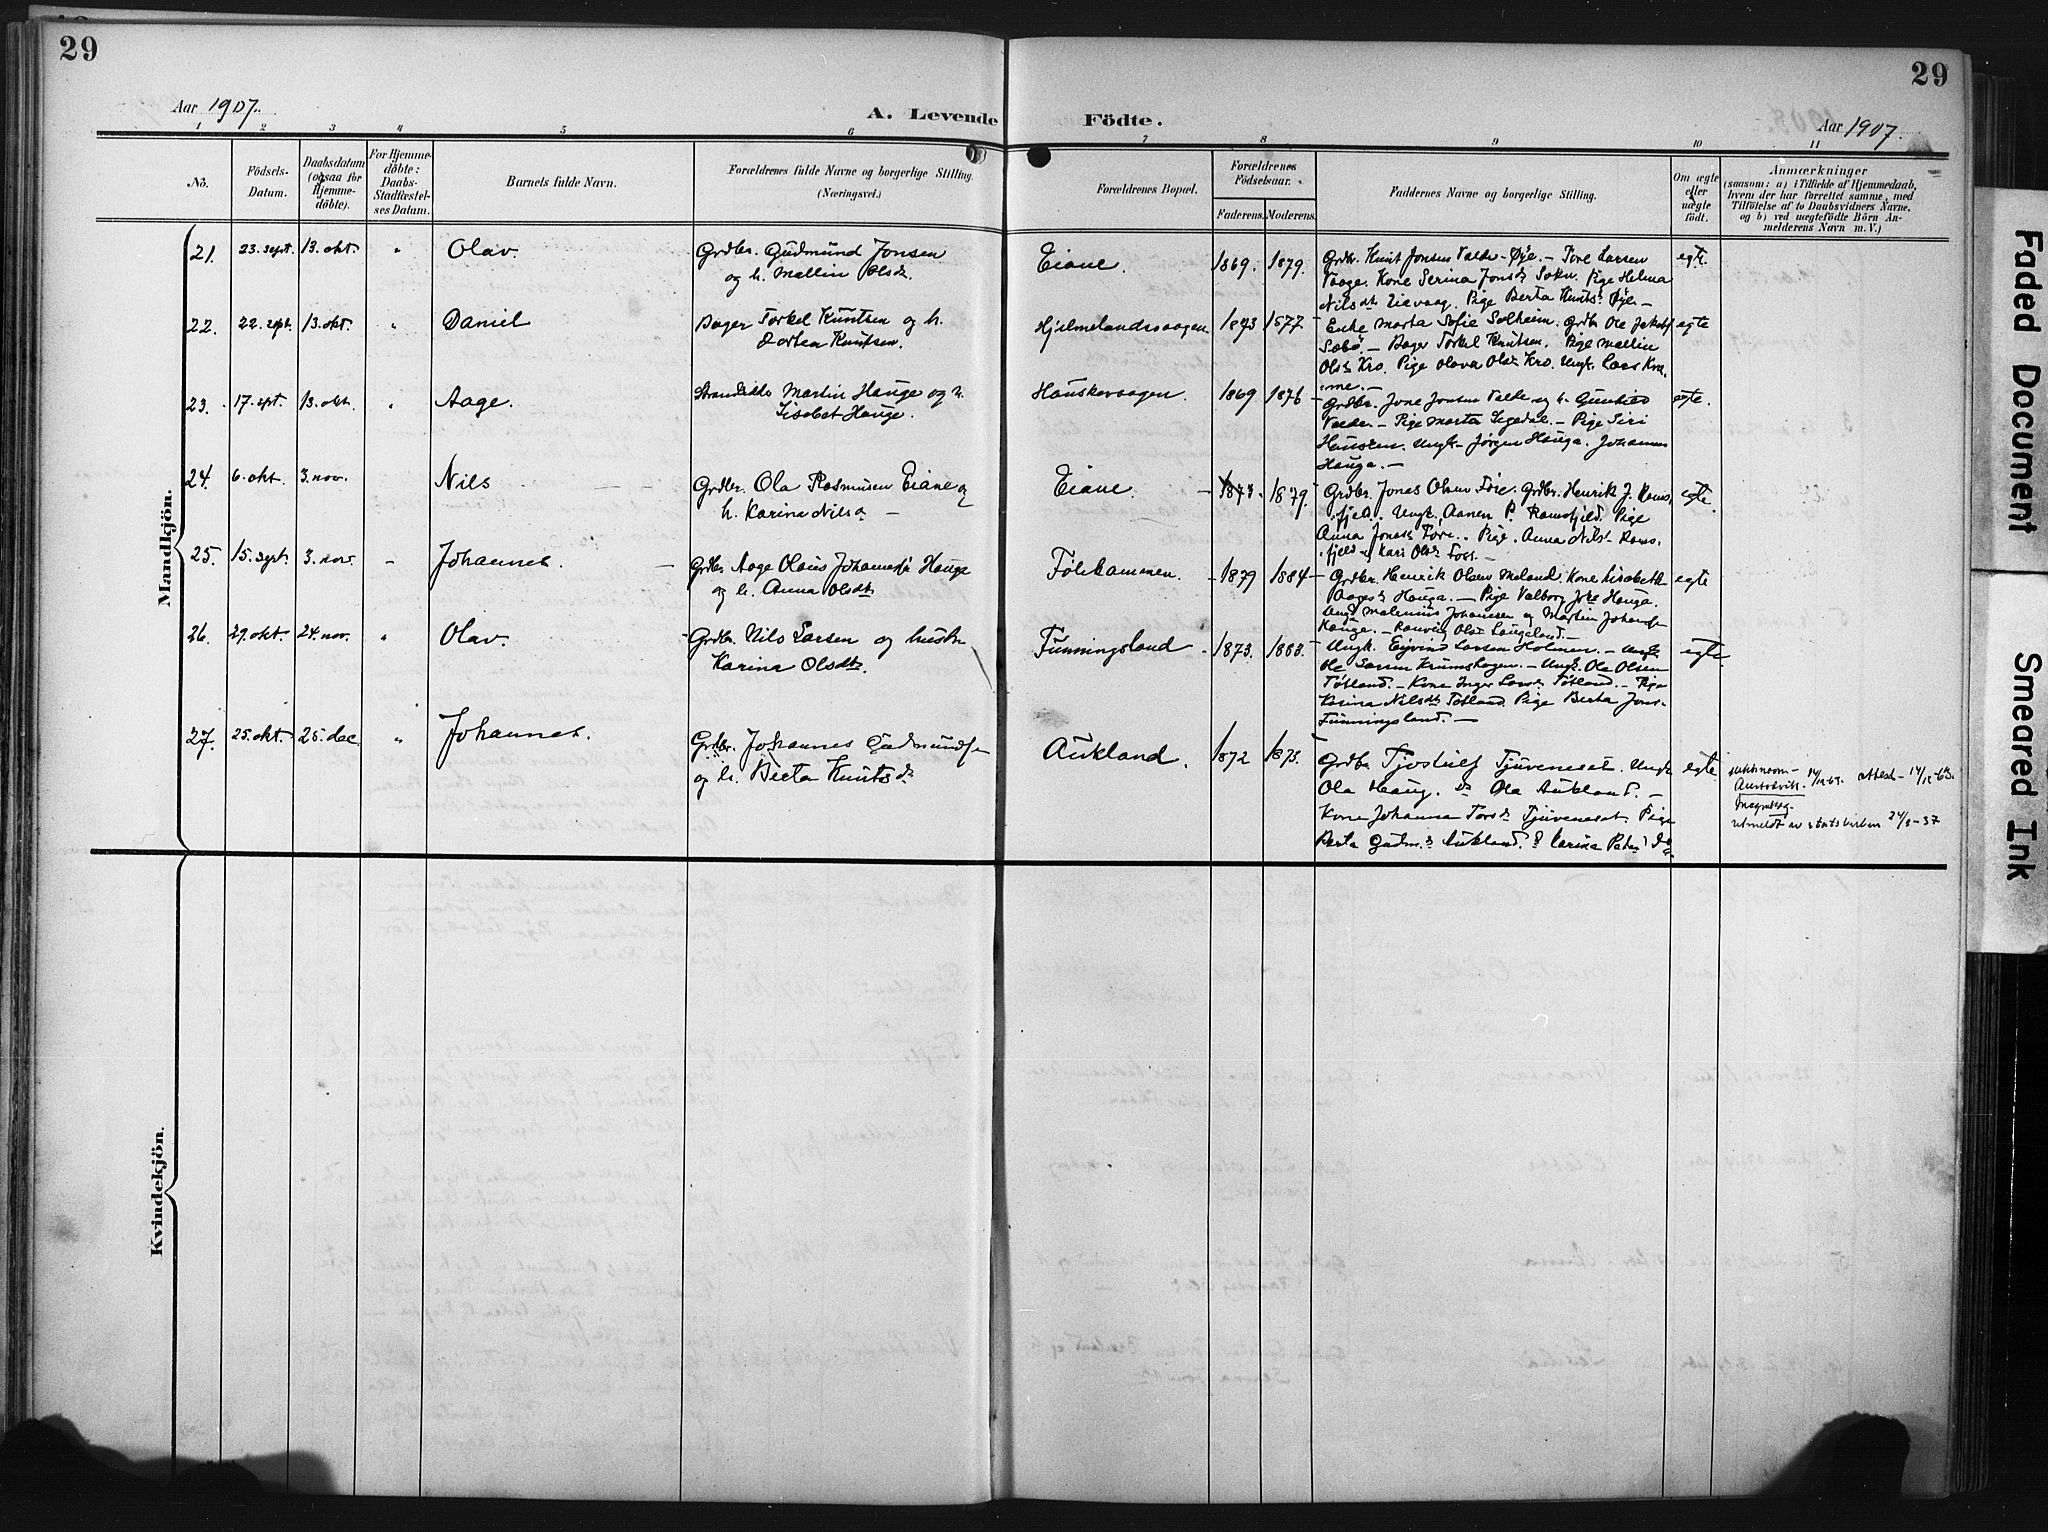 29
29
Aar 1907.
A. Levende Födte.
Aar 1907.
1 2 3 4 5 6 7 8 9 10 11
No.
Födsels-Datum.
Daabsdatum (ogsaa for Hjemmedöbte).
For Hjemmedöbte: Daabs-Stadfæstelses Datum.
Barnets fulde Navn.
Forældrenes fulde Navne og borgerlige Stilling. (Næringsvei.)
Forældrenes Bopæl.
Forældrenes Födselsaar.
Faderens. Moderens.
Faddernes Navne og borgerlige Stilling.
Om ægte eller uægte födt.
Anmærkninger
(saasom: a) i Tilfælde af Hjemmedaab,
hvem der har forrettet samme, med
Tilföielse af to Daabsvidners Navne,
og b) ved uægtefödte Börn An-
melderens Navn m. V.)
Mandkjön.
21. 23. sept. 13. okt. " Olav. Grdbr. Gudmund Jonsen
og h. Mallin Olsdr.
Eiane. 1869. 1879.
Grdbr. Knut Jonsen Valde - Øje. - Tore Larsen
Vaage. Kone Serina Jonsdr Sokn. Pige Helma
Nilsdtr Pige Berta Knuts. Øje. -
egte.
22. 22. sept. 13. okt. " Daniel Bager Torkel Knutsen og h.
Dortea Knutsen.
Hjelmelandsvaagen 1873 1877.
Enke Marta Sofie Solheim. Grdbr Ole Jakobs
Sæbø. - Bager Torkel Knutsen. Pige Mallin
Olsdr Kro. Pige Olava Olsdr Kro. Ungk. Lars
egte
23. 17. sept. 13. okt. " Aage. Strandsidder Martin Hauge og h.
Lisabet Hauge.
Hauskevaagen. 1869 1876
Grdbr. Jone Jonsen Valde og h. Gunhild
Valde. - Pige Marta - Pige Siri
Ungk. - Jørgen Hauga. Johannes
Hauga. -
egte.
24. 6. okt. 3. nov. Nils Grdbr. Ola Rasmusen Eiane og
h. Karina Nilsd -
Eiane. 1873. 1879.
Grdbr. Jonas Olsen Føre. Grdbr. Henrik J. Rams-
fjeld. Ungk. Aanen P. Ramsfjeld. Pige
Anna Jonasdr Føre. Pige. Anna Nils. Rams-
fjeld - Kari Olsdr Foss. -
egte.
25. 15. sept. 3. nov. - Johannes. Grdbr. Aage Olaus Johannes Hauge
og h. Anna Olsdtr
Følekammen. 1879 1884
Grdbr. Henrik Olsen Meland. Kone Lisabeth
Aagesdr Hauga. - Pige Valborg Hauga.
Ungk Malenius Johannesen og Martin Johans
Hauge. - Ranveig Olsdr Laugeland. -
egte
26. 29. okt. 24. nov. " Olav. Grdbr. Nils Larsen og hustru
Karina Olsdtr.
Funningsland 1873. 1883.
Ungk. Eivind Larsen Holmen. - Ungk.
Ole Larsen Ungk. Ole Olsen
Tøtland. - Kone Inger Larsdr Tøtland. - Pige
Nilsdtr Tøtland. Pige Berta Jons.
Funningsland. -
egte
27. 25. okt. 26. dec. " Johannes. Grdbr. Johannes Gudmunds
og h. Berta Knutsdr
Aukland. 1872 1875.
Grdbr. Tjostulf Tjuveneset. Ungk
Ola Haug. do Ola Aukland. -
Kone Johanna Torsdr Tjuveneset. Pige
Berta Gudm. Aukland. & Karina do.
egte.
attest 14/12-63.
utmeldt av statskirken 24/8-37
Kvindekjön.
Faded Document
Smeared Ink